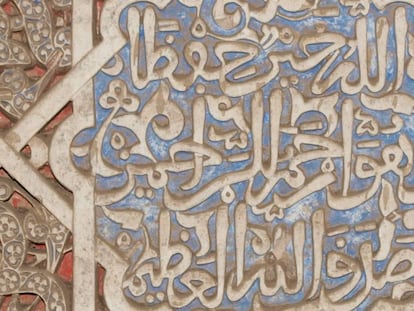 فالله خير حفظا
وهو ارحم الرحمين
صدق الله العظيم